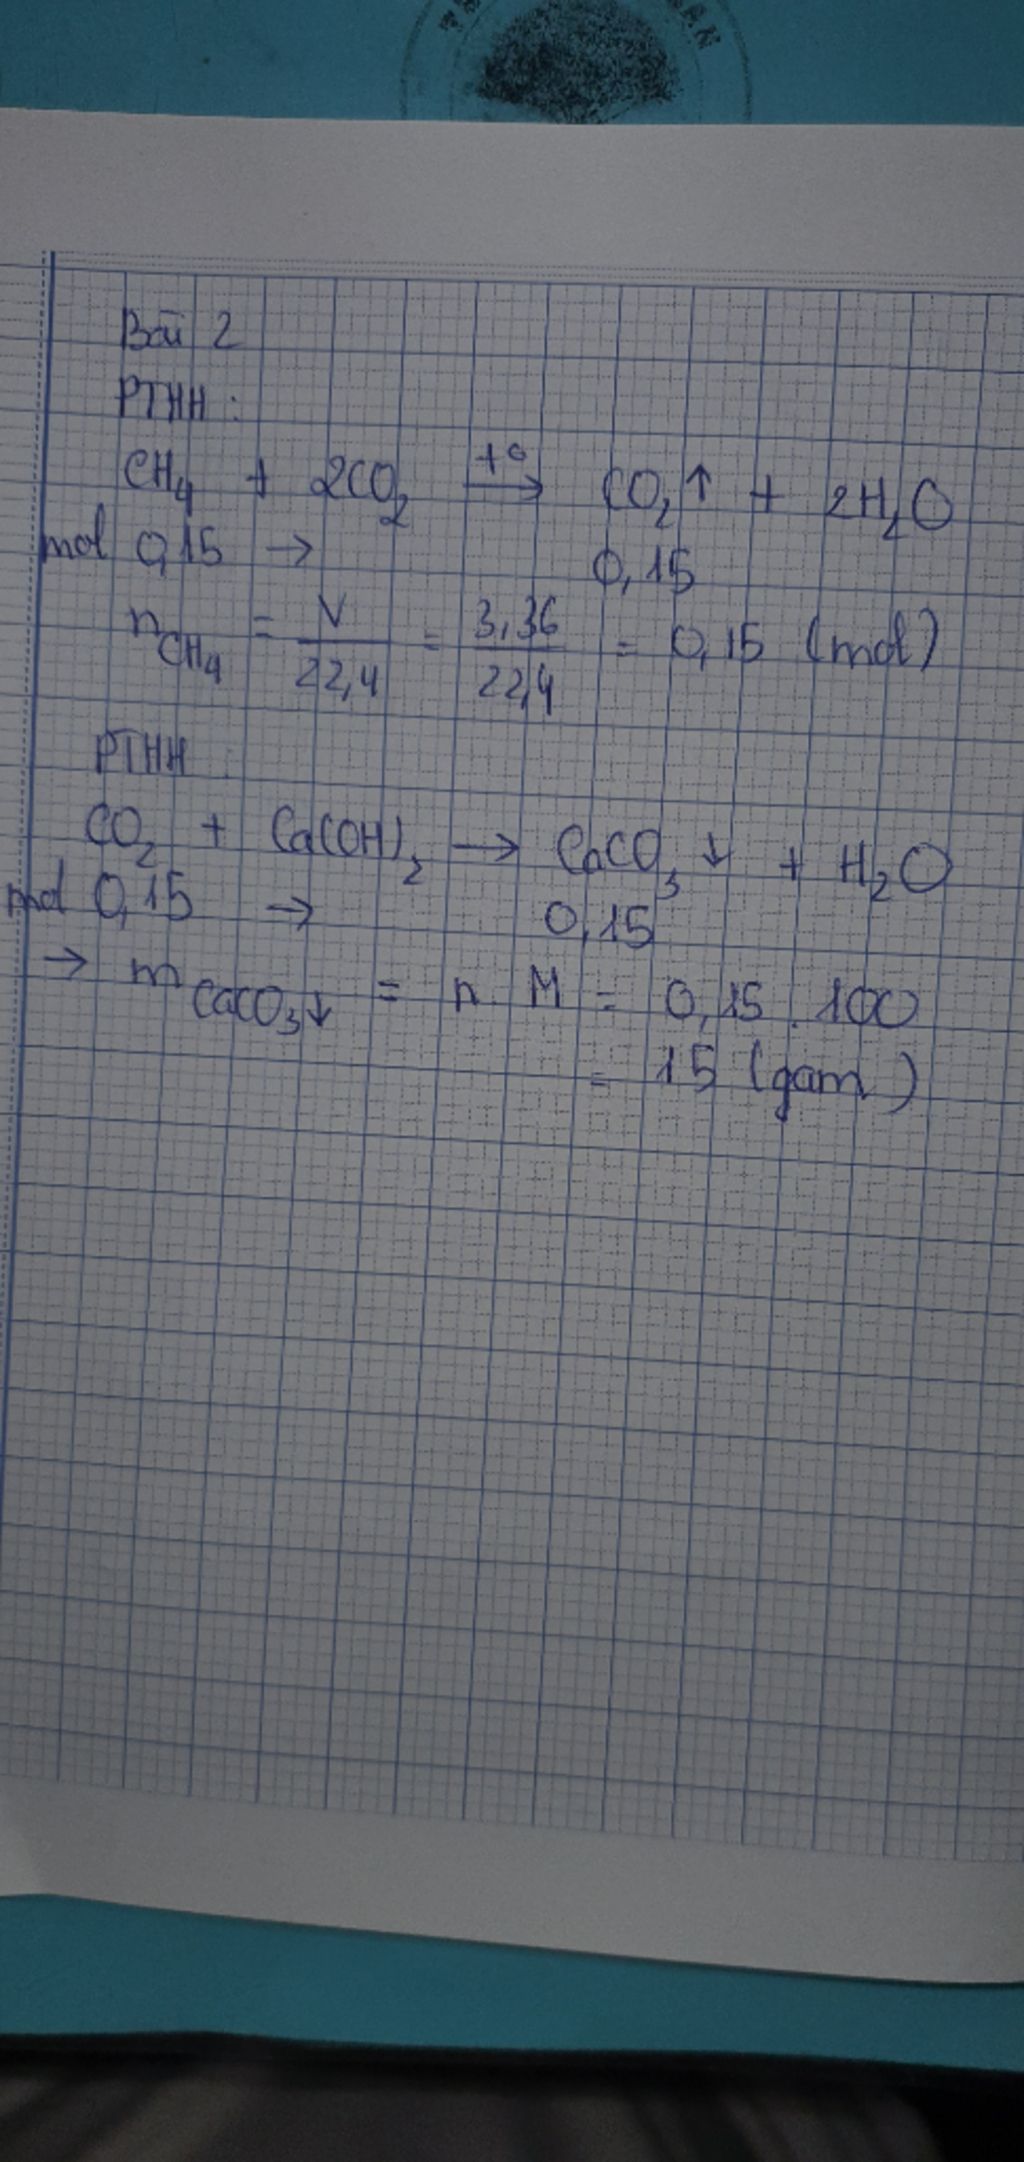 Bài 2
PTHH :
CH₄ + 2CO₂ t° → CO₂↑ + 2H₂O
mol 0,15 → 0,15
nCH₄ = V/22,4 = 3,36/22,4 = 0,15 (mol)
PTHH :
CO₂ + Ca(OH)₂ → CaCO₃ ↓ + H₂O
mol 0,15 → 0,15
→ mCaCO₃↓ = n . M = 0,15 . 100
= 15 (gam)